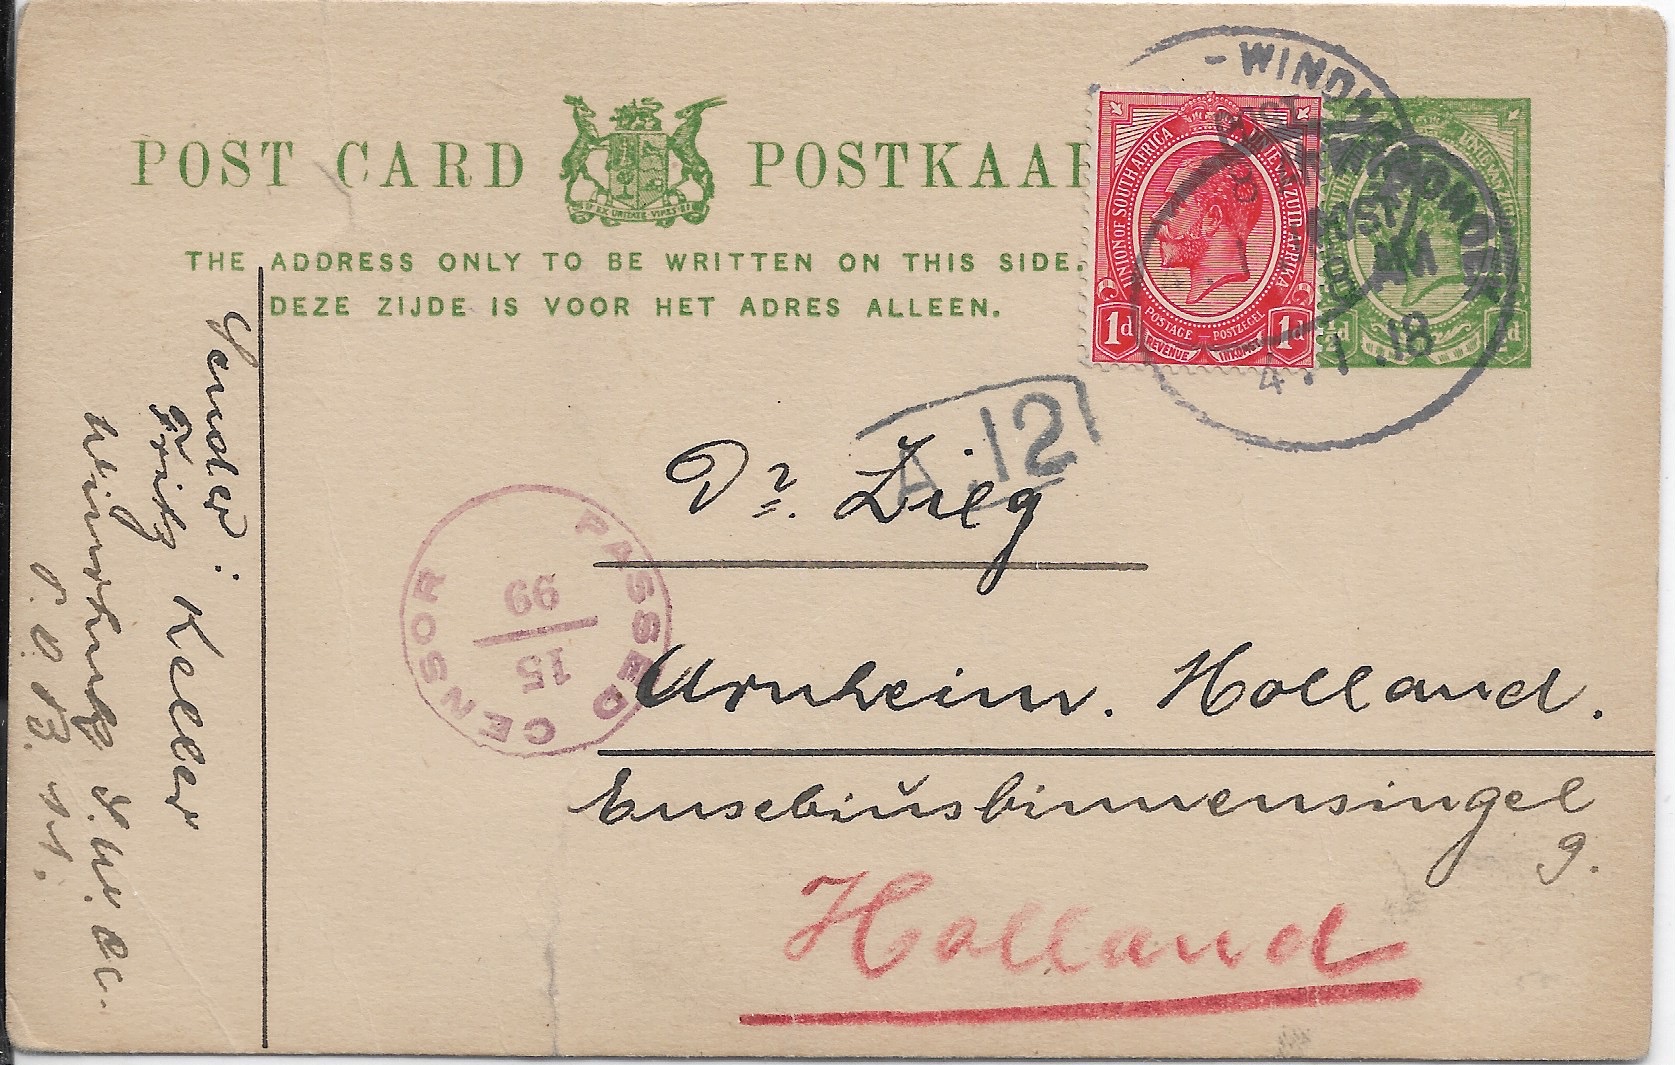 POST CARD
POSTKAA
THE ADDRESS ONLY TO BE WRITTEN ON THIS SIDE.
DEZE ZIJDE IS VOOR HET ADRES ALLEEN.
UNION OF SOUTH AFRICA
UNIE VAN ZUID AFRIKA
POSTAGE POSTZEGEL
REVENUE INKOMST
1d 1d
½d ½d
WINDH
4.1.18
A.12
PASSED CENSOR
15
99
Dr. Zieg
Arnheim. Holland.
Eusebiusbinnensingel
9.
Holland
Sender:
Fritz Keller
Windhuk S.W.A.
P.O.B.